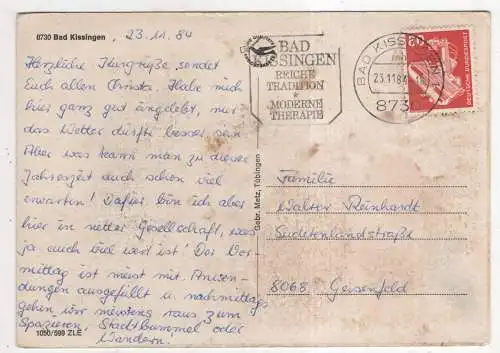 8730 Bad Kissingen
23.11.84
Herzliche Kurgrüße sendet
Euch allen Christa. Habe mich
hier ganz gut eingelebt, nur
das Wetter dürfte besser sein
Aber was kann man zu dieser
Jahreszeit auch schon viel
erwarten! Dafür bin ich aber
hier in netter Gesellschaft, was
ja auch viel wert ist! Der Vor-
mittag ist meist mit Anwen-
dungen ausgefüllt u. nachmittags
gehen wir meistens raus zum
Spazieren, Stadtbummel oder
Wandern!
1050/599 ZLE
Gebr. Metz, Tübingen
BAD
KISSINGEN
REICHE
TRADITION
*
MODERNE
THERAPIE
BAD KISSINGEN
23.11.84
8730
DEUTSCHE BUNDESPOST
Familie
Walter Reinhardt
Sudetenlandstraße
8068 Geisenfeld